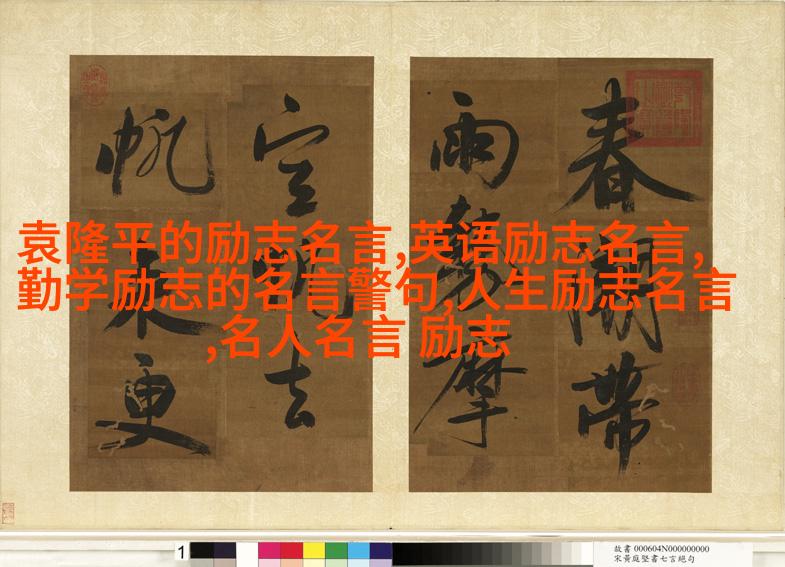 春
帶
雨
摩
空
去
帆
未
更
袁隆平的励志名言,英语励志名言,
勤学励志的名言警句,人生励志名言
,名人名言 励志
1
故書 000604N000000000
宋黃庭堅書七言絕句